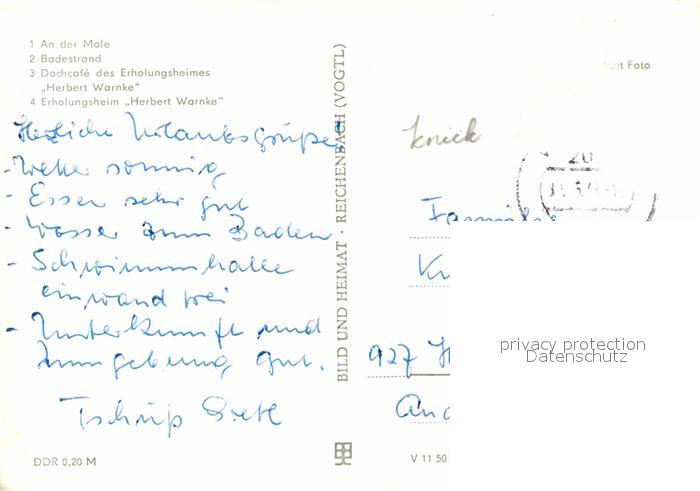 1 An der Mole
2 Badestrand
3 Dachcafé des Erholungsheimes
„Herbert Warnke"
4 Erholungsheim „Herbert Warnke"
Herzliche Urlaubsgrüße!
- Wetter sonnig
- Essen sehr gut
- Wasser zum Baden
- Schwimmhalle
einwandfrei
- Unterkunft und
Umgebung gut.
Tschüß
DDR 0,20 M
BILD UND HEIMAT · REICHENBACH (VOGTL)
Foto
knick
20
Familie
927
V 11 50
privacy protection
Datenschutz